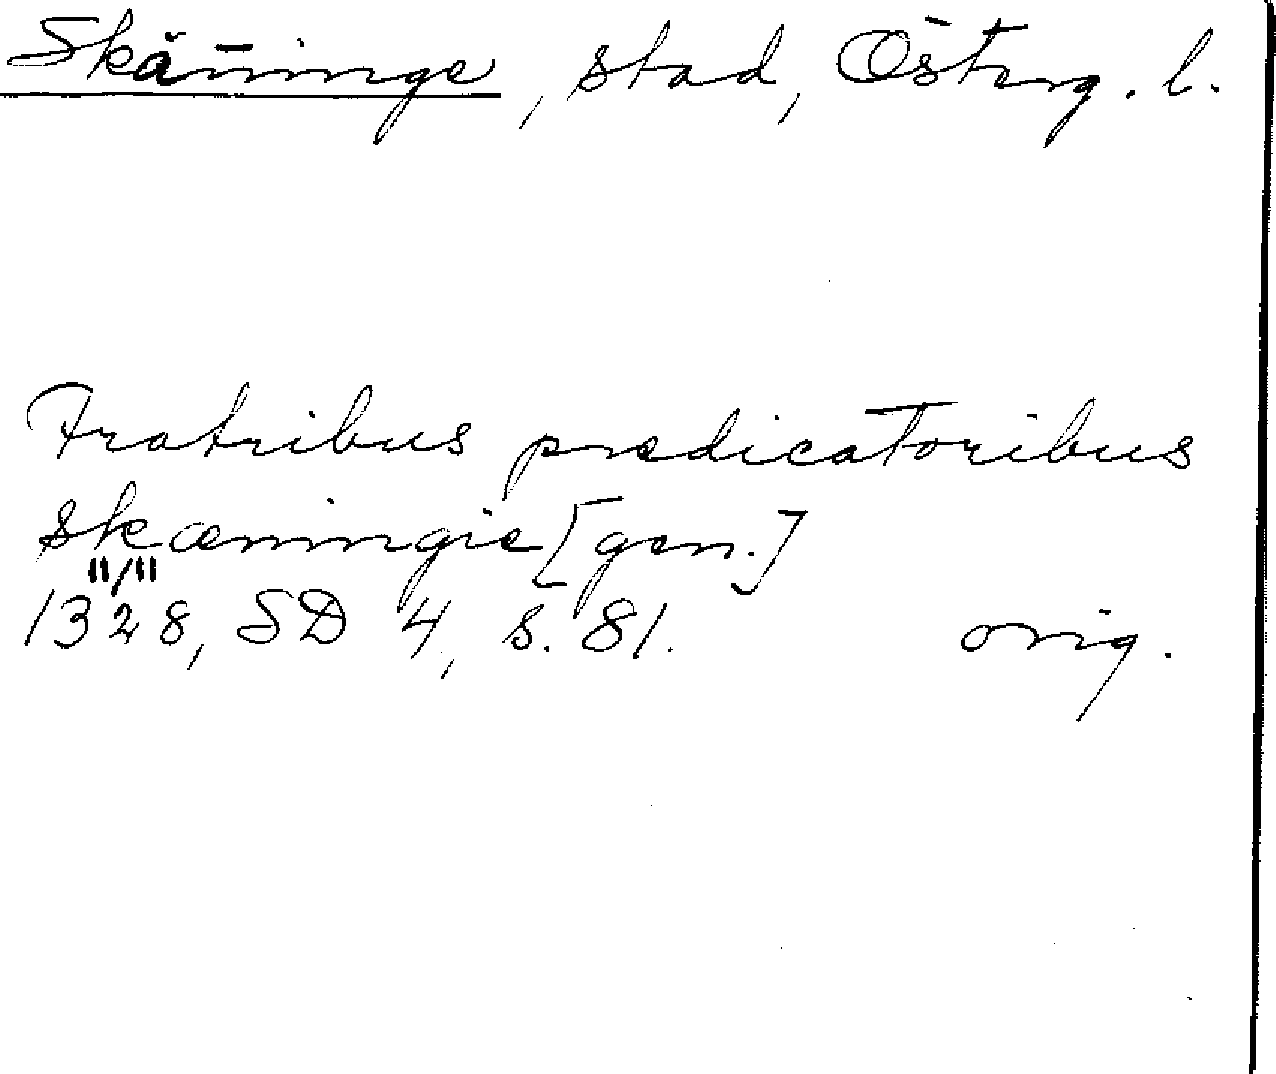 Skänninge, stad, Österg. l.
Fratribus predicatoribus
skæningie [gen.]
11/11
1328, SD 4, s. 81. orig.